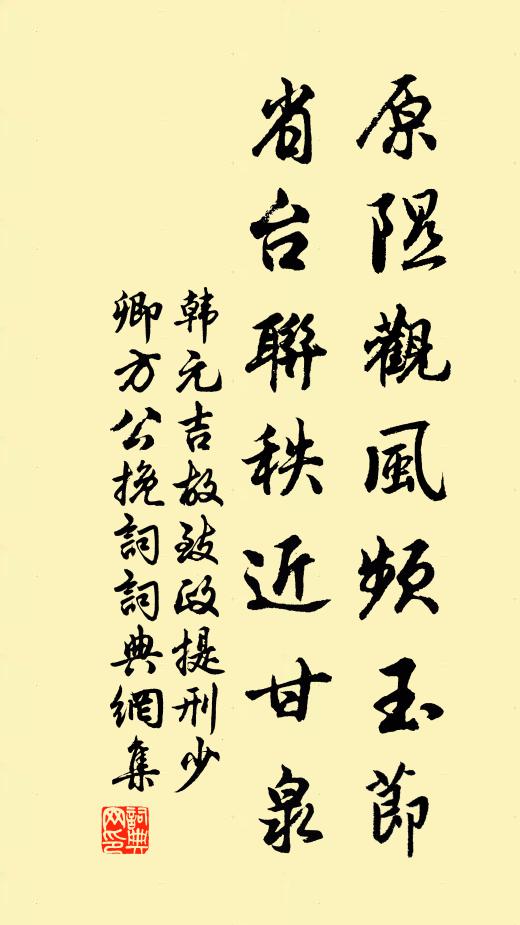 原隰觀風頻玉節
省台聯秩近甘泉
韩元吉故致政提刑少
卿方公挽詞詞典網集
詞典網印